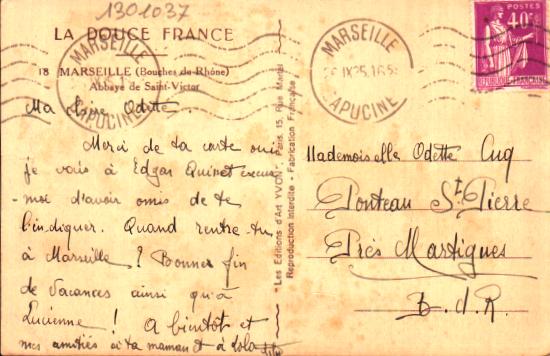 1301037
LA DOUCE FRANCE
18 MARSEILLE (Bouches-du-Rhône)
Abbaye de Saint-Victor
MARSEILLE
CAPUCINE
Ma Odette.
Merci de ta carte oui
je vais à Edgar Quinet excuse
-moi d'avoir omis de te
l'indiquer. Quand rentre-tu
à Marseille ? Bonne fin
de vacances ainsi qu'à
Lucienne ! A bientôt et
mes amitiés à ta maman et à Lola
"Les Editions d'Art YVON", Paris, 15, Rue Martel
Reproduction Interdite - Fabrication Française
MARSEILLE
IX 35
CAPUCINE
POSTES
40c
REPUBLIQUE FRANCAISE
Mademoiselle Odette Cuq
Ponteau St Pierre
Près Martigues
B.d.R.